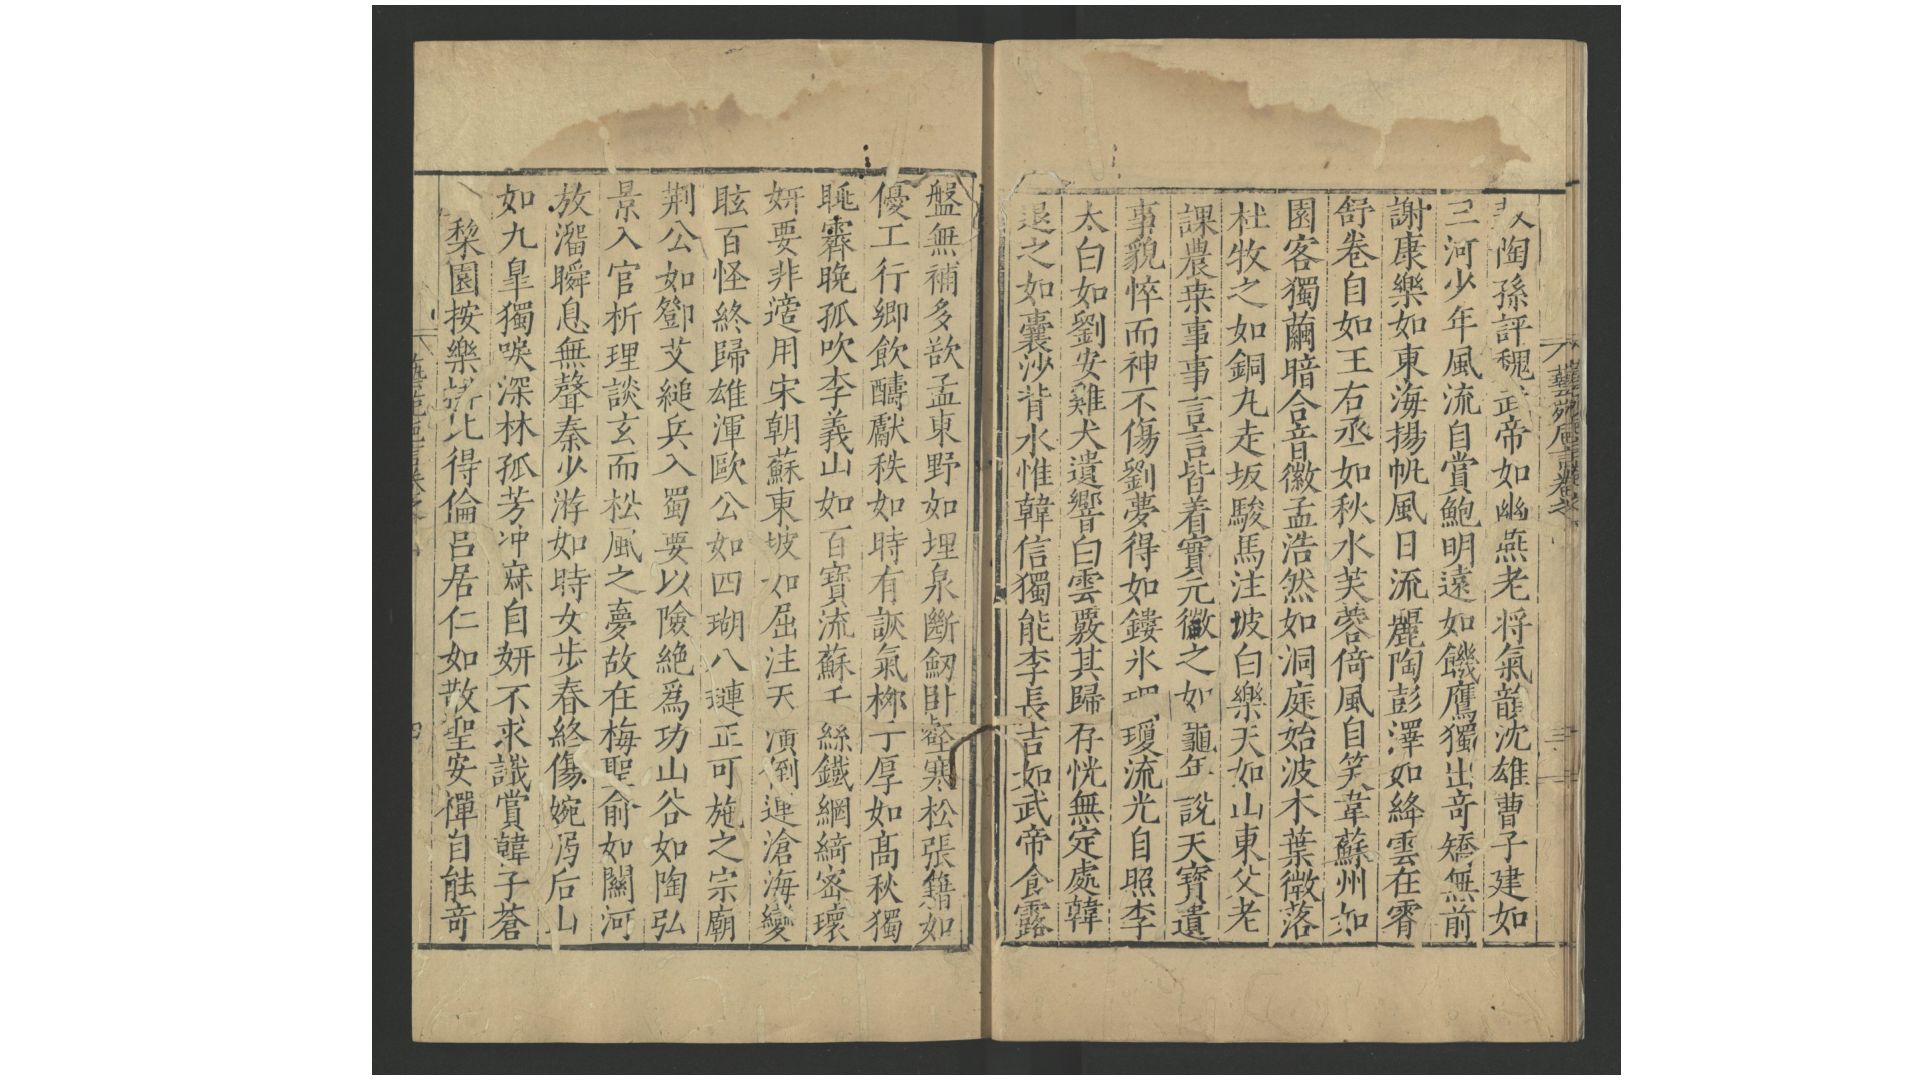 敖陶孫評魏武帝如幽燕老將氣韻沈雄曹子建如
三河少年風流自賞鮑明遠如饑鷹獨出奇矯無前
謝康樂如東海揚帆風日流麗陶彭澤如絳雲在霄
舒卷自如王右丞如秋水芙蓉倚風自笑韋蘇州如
園客獨繭暗合音徽孟浩然如洞庭始波木葉微落
杜牧之如銅丸走坂駿馬注坡白樂天如山東父老
課農桒事事言言皆着實元微之如龜年說天寶遺
事貌悴而神不傷劉夢得如鏤氷瓊流光自照李
太白如劉安雞犬遺響白雲覈其歸存恍無定處韓
退之如囊沙背水惟韓信獨能李長吉如武帝食露
盤無補多欲孟東野如埋泉斷劒卧壑寒松張籍如
優工行鄉飲醻獻秩如時有詼氣栁子厚如高秋獨
眺霽晚孤吹李義山如百寶流蘇千絲鐵網綺密瓌
妍要非適用宋朝蘇東坡如屈注天潢倒連滄海變
眩百怪終歸雄渾歐公如四瑚八璉正可施之宗廟
荆公如鄧艾縋兵入蜀要以險絶爲功山谷如陶弘
景入官析理談玄而松風之夢故在梅聖俞如關河
放溜瞬息無聲秦少游如時女步春終傷婉弱后山
如九臯獨唳深林孤芳冲寂自妍不求識賞韓子蒼
棃園按樂排比得倫呂居仁如散聖安禪自能竒
藝苑巵言卷之
藝苑巵言卷之
四